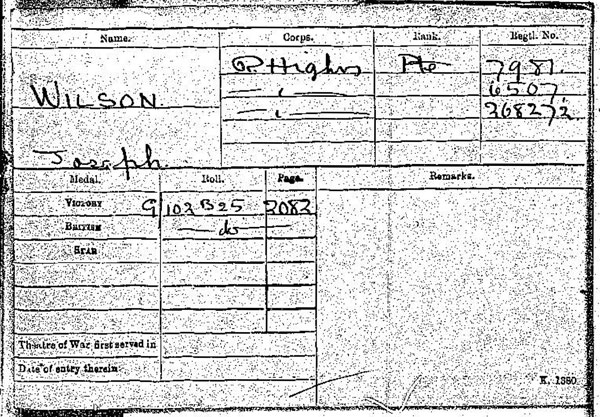 Name. Corps. Rank. Regtl. No.
R. Highrs Pte 7981.
WILSON — " — 6507.
— " — 268272
Joseph.
Medal. Roll. Page. Remarks.
VICTORY G/102 B25 2082
BRITISH — do —
STAR
Theatre of War first served in
Date of entry therein
K. 1380